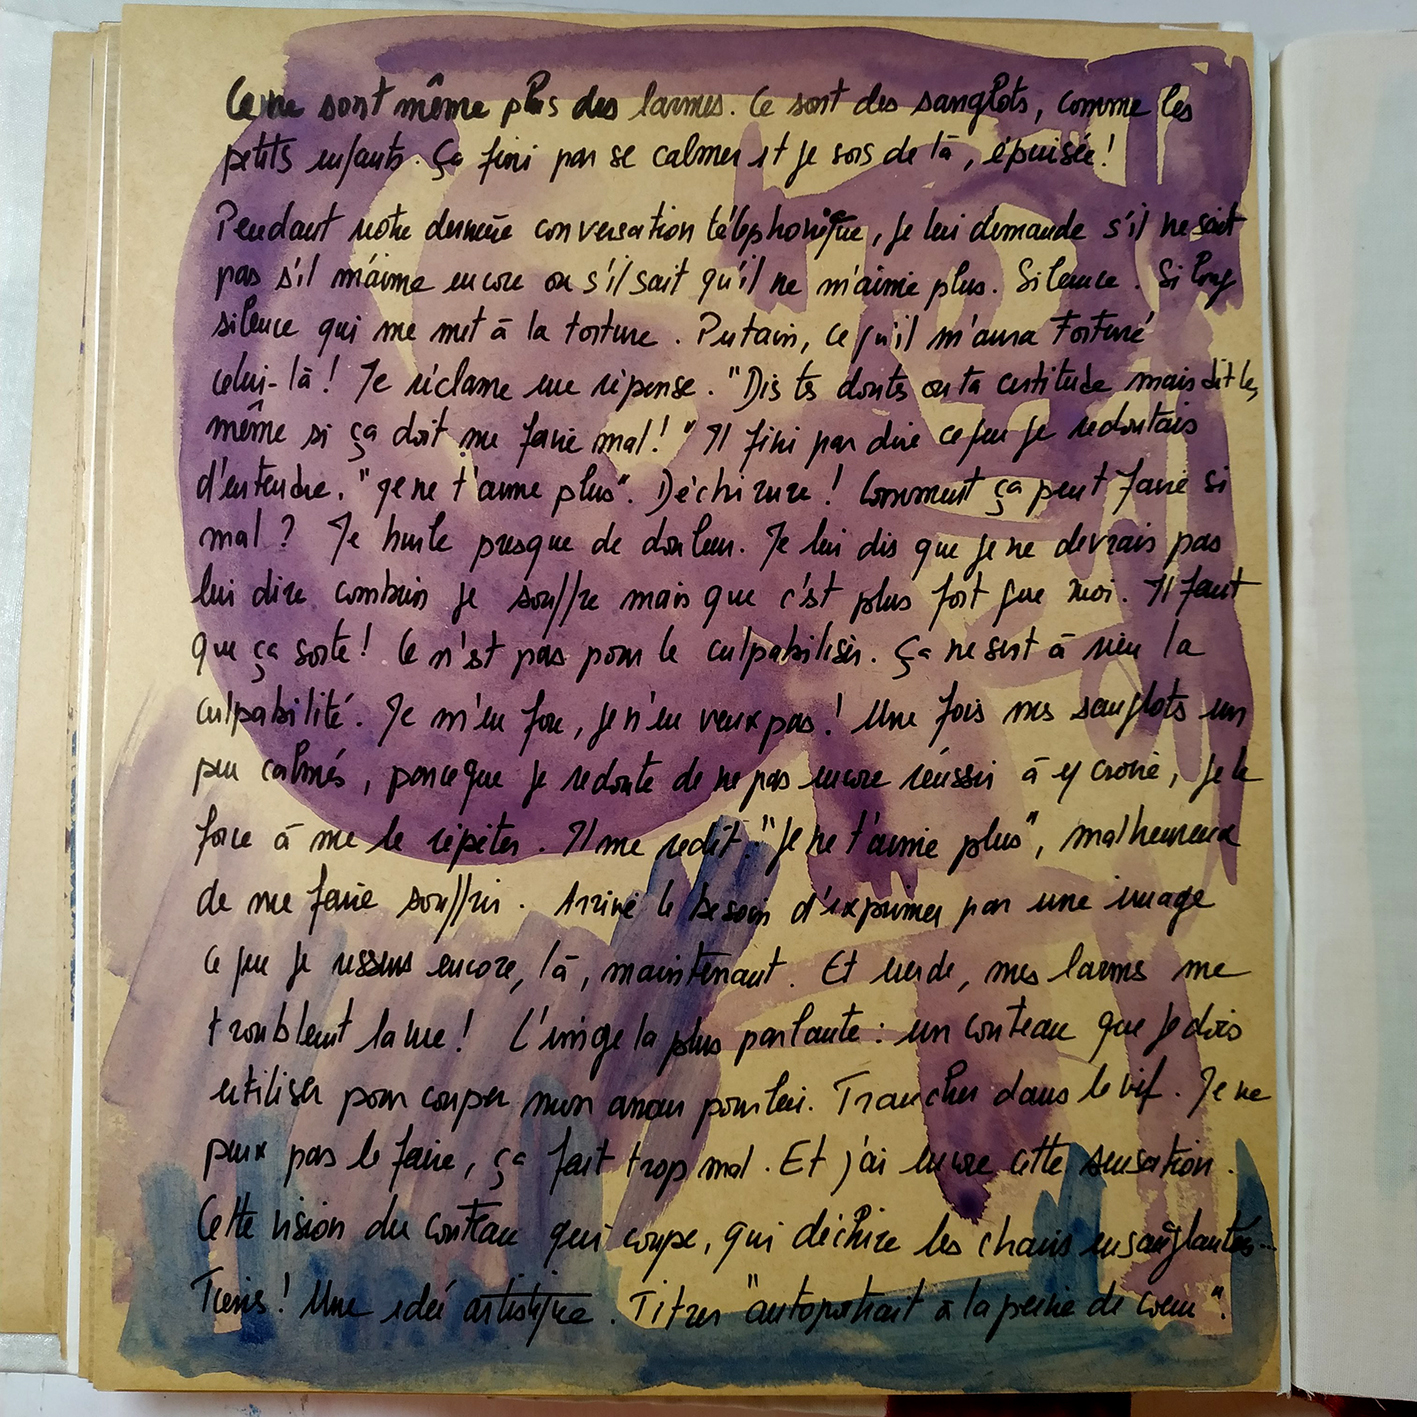 Ce ne sont même plus des larmes. Ce sont des sanglots, comme les
petits enfants. Ça fini par se calmer et je sors de là, épuisée !
Pendant notre dernière conversation téléphonique, je lui demande s'il ne sait
pas s'il m'aime encore ou s'il sait qu'il ne m'aime plus. Silence. Si long
silence qui me met à la torture. Putain, ce qu'il m'aura torturé
celui-là ! Je réclame une réponse. "Dis tes doutes ou ta certitude mais dit les,
même si ça doit me faire mal ! " Il fini par dire ce que je redoutais
d'entendre. "Je ne t'aime plus". Déchirure ! Comment ça peut faire si
mal ? Je hurle presque de douleur. Je lui dis que je ne devrais pas
lui dire combien je souffre mais que c'est plus fort que moi. Il faut
que ça sorte ! Ce n'est pas pour le culpabiliser. Ça ne sert à rien la
culpabilité. Je m'en fou, je n'en veux pas ! Une fois mes sanglots un
peu calmés, parce que je redoute de ne pas encore réussir à y croire, je le
force à me le répéter. Il me redit "Je ne t'aime plus", malheureux
de me faire souffrir. Arrive le besoin d'exprimer par une image
ce que je ressens encore, là, maintenant. Et merde, mes larmes me
troublent la vue ! L'image la plus parlante : un couteau que je dois
utiliser pour couper mon amour pour lui. Trancher dans le vif. Je ne
peux pas le faire, ça fait trop mal. Et j'ai encore cette sensation.
Cette vision du couteau qui coupe, qui déchire les chairs ensanglantées...
Tiens ! Une idée artistique. Titre "autoportrait à la peine de coeur".